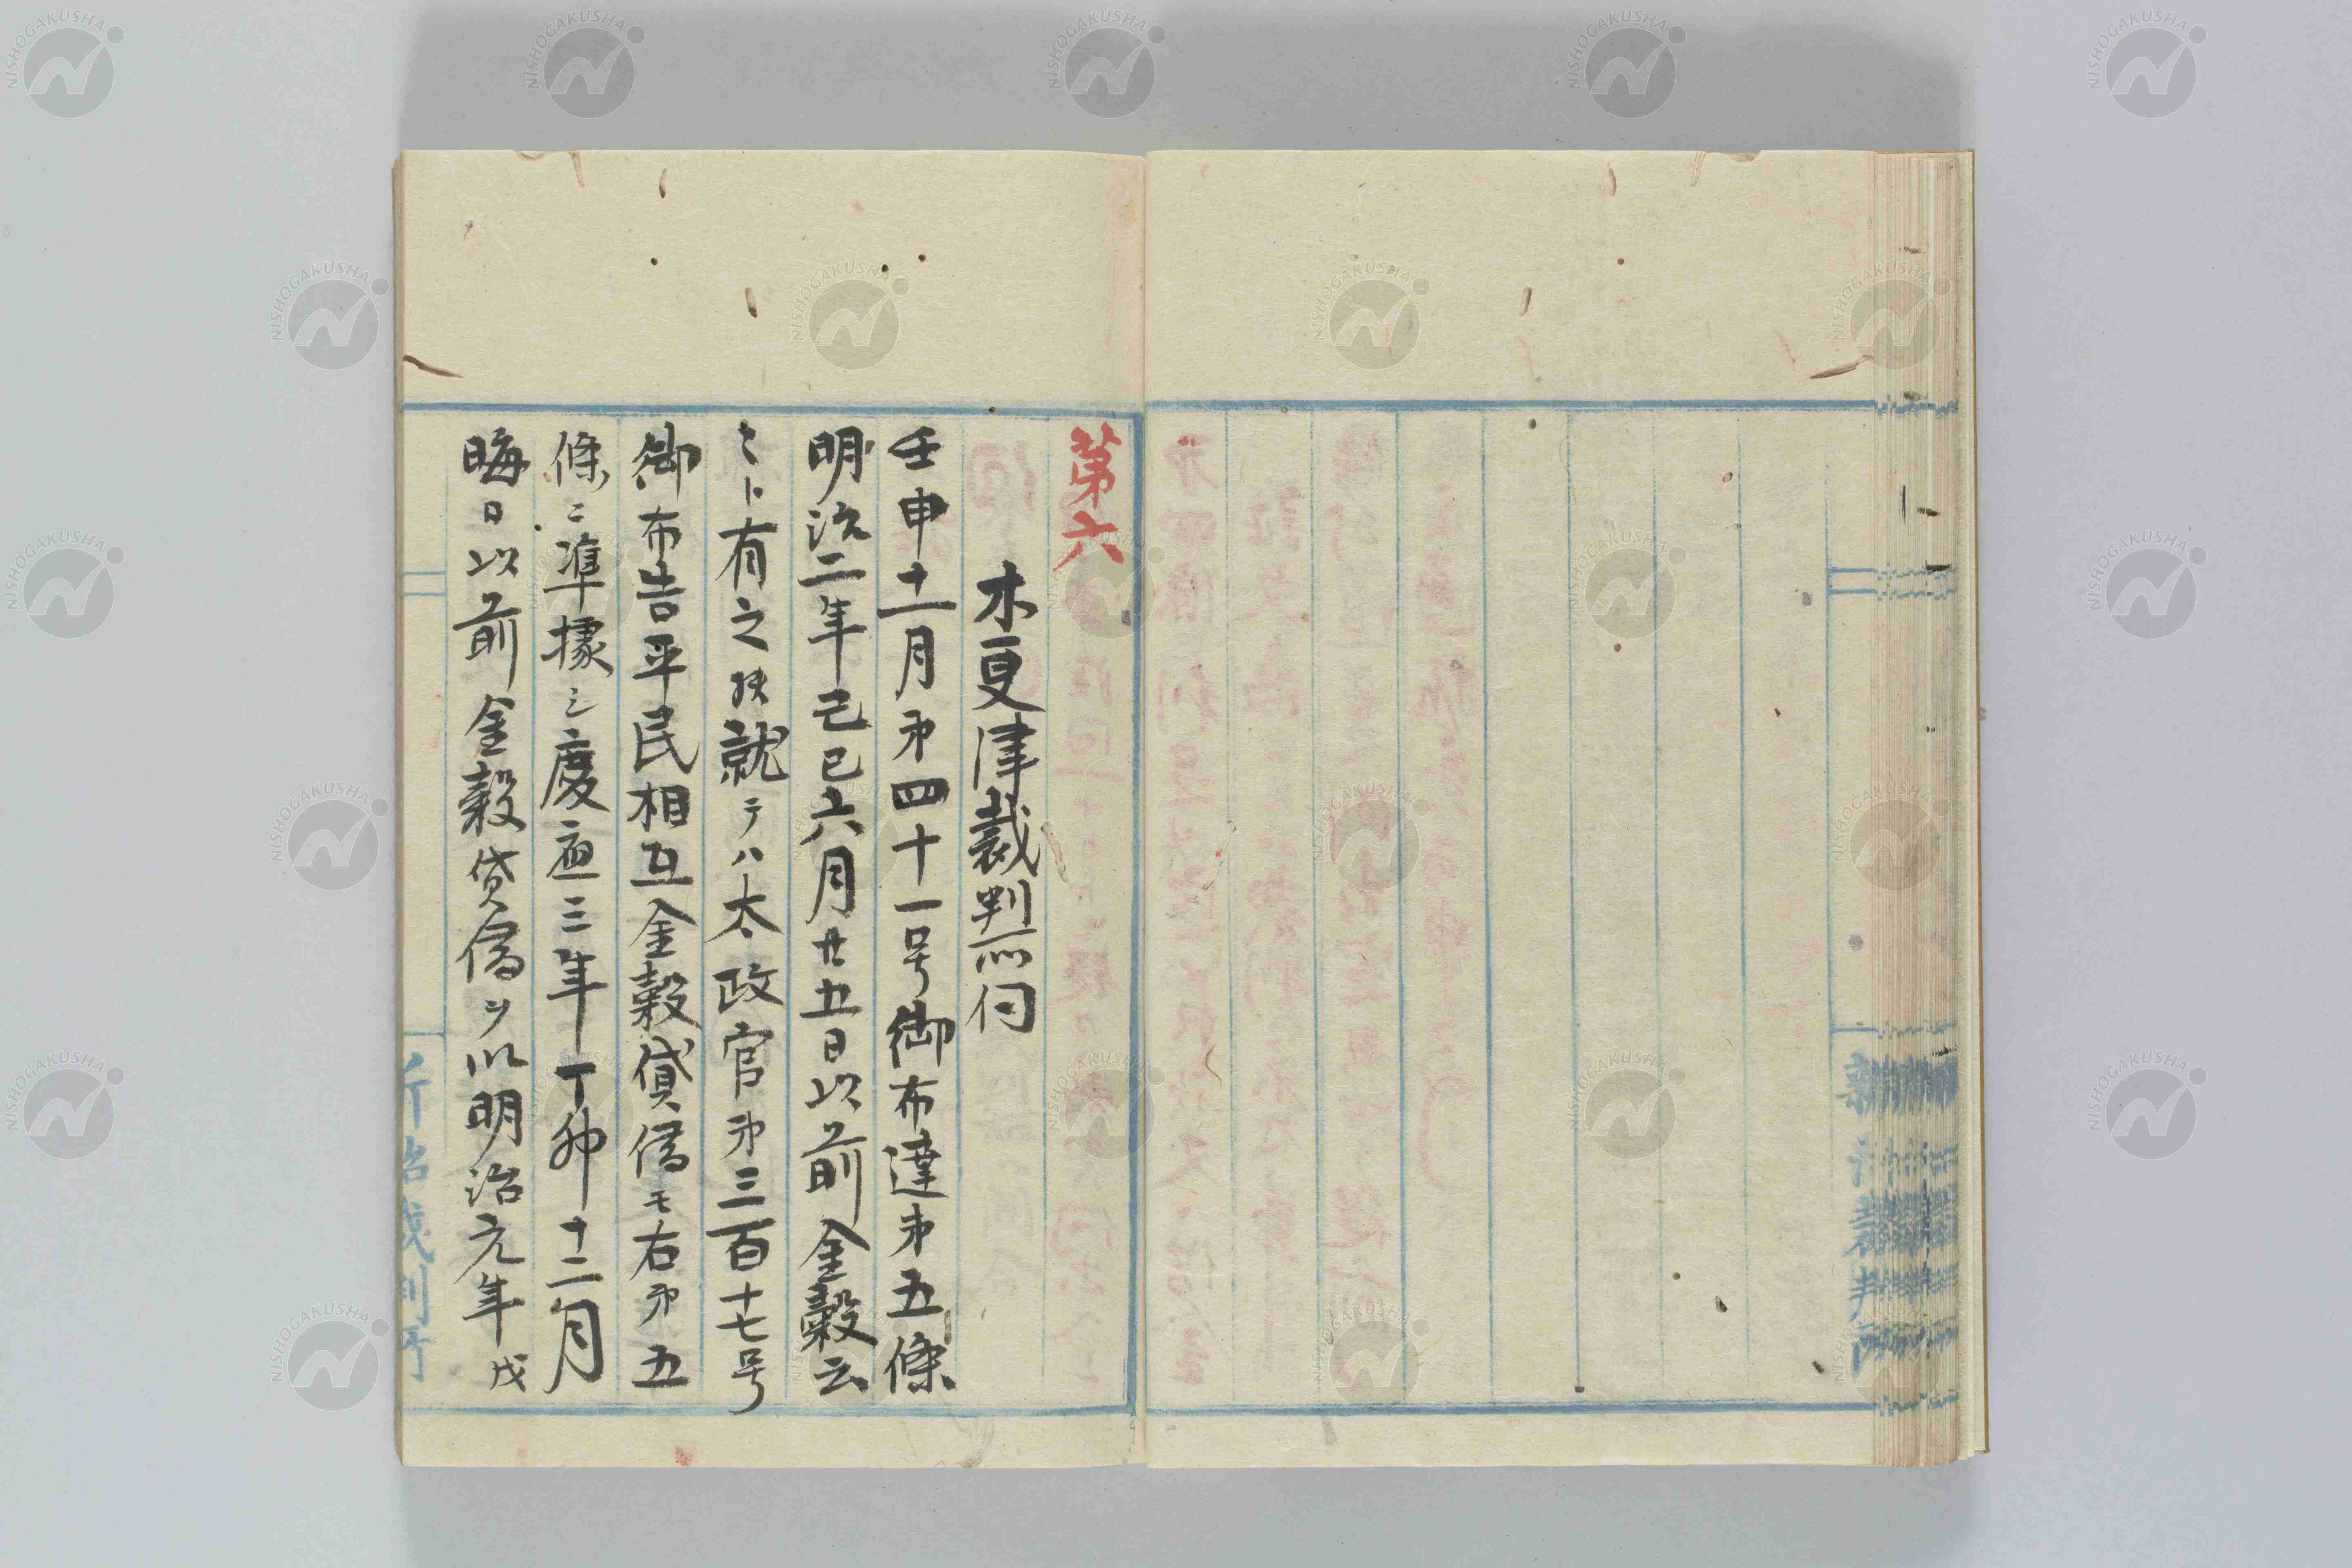 第六
木更津裁判所伺
壬申十一月第四十一号御布達第五條
明治二年己巳六月廿五日以前金穀云
々ト有之候就テハ太政官第三百十七号
御布告平民相互金穀貸借モ右第五
條ニ準據シ慶應三年丁卯十二月
晦日以前金穀貸借ヲ以明治元年戊
NISHOGAKUSHA